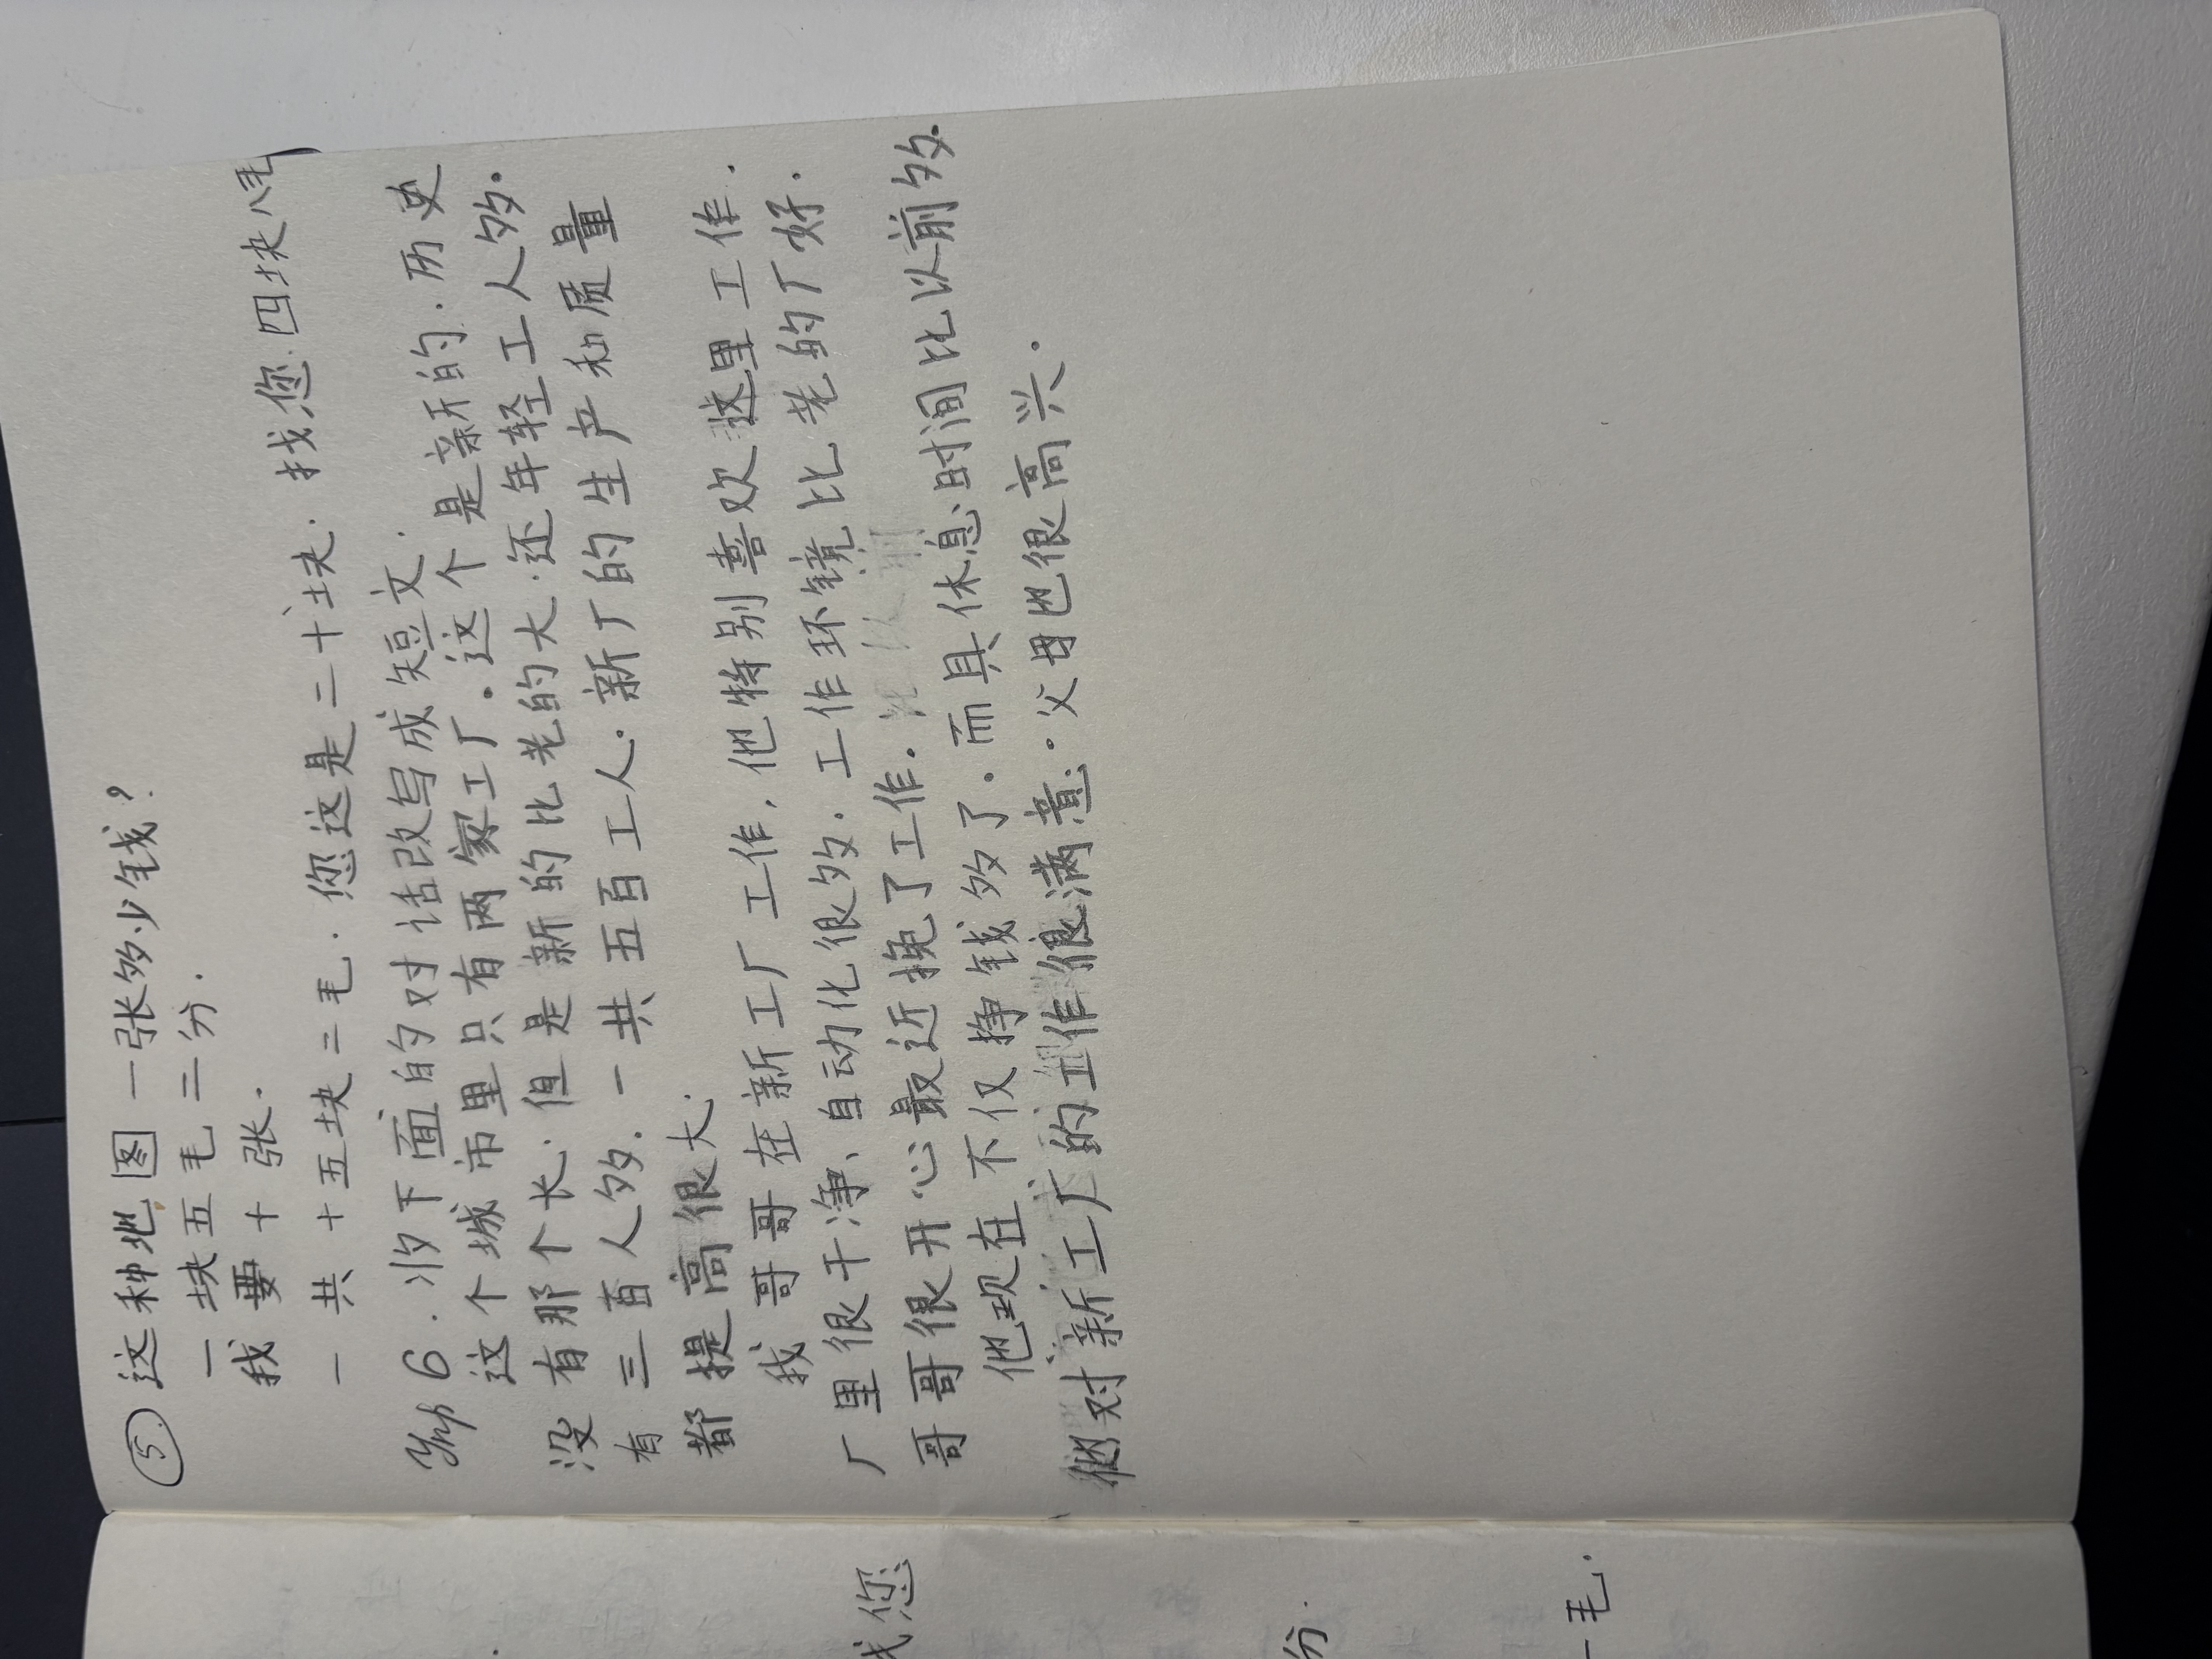 ⑤ 这种地图一张多少钱?
一块五毛二分.
我要十张.
一共十五块二毛. 您这是二十块. 找您四块八毛
Упр 6. 将下面的对话改写成短文.
这个城市里只有两家工厂。这个是新的. 历史
没有那个长. 但是新的比老的大. 还年轻工人多.
有三百人多. 一共五百工人. 新厂的生产和质量
都提高很大.
我哥哥在新工厂工作, 他特别喜欢这里工作.
厂里很干净、自动化很多. 工作环镜比老的厂好.
哥哥很开心最近挽了工作. 比以前
他现在不仅挣钱多了. 而具休息时间比以前多.
他对新工厂的工作很满意. 父母也很高兴.
您
分.
一毛.